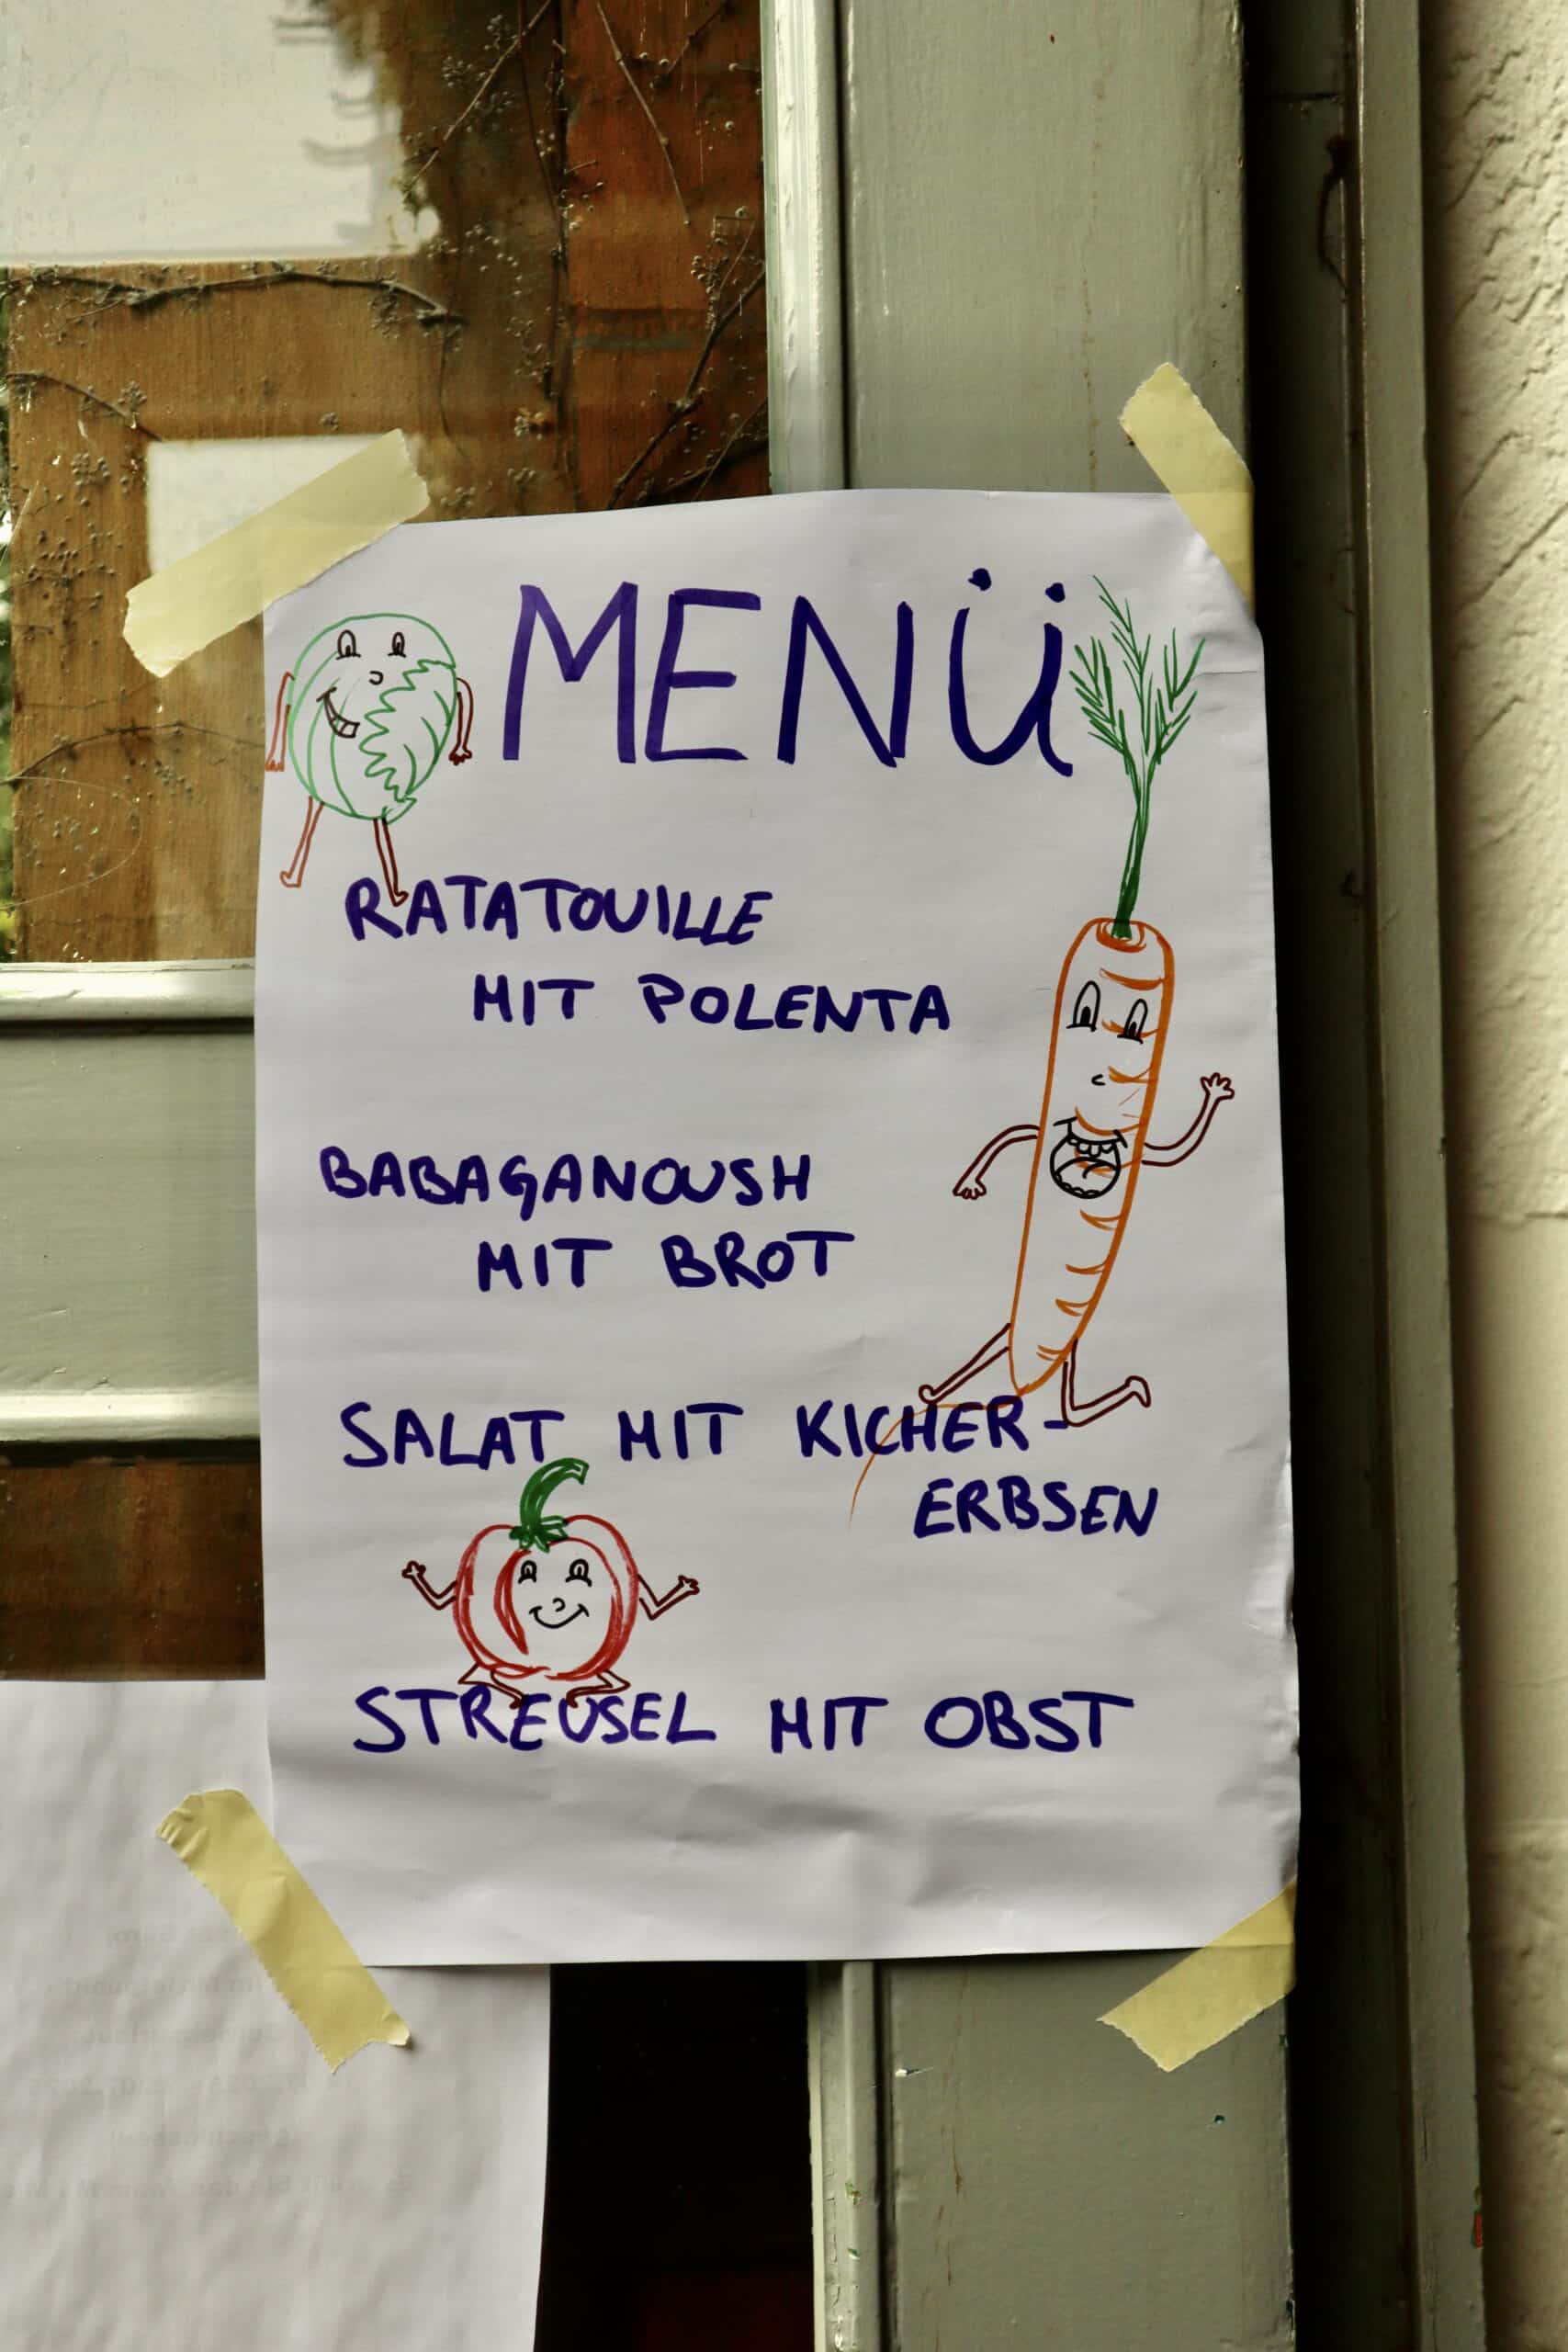 MENÜ
RATATOUILLE
MIT POLENTA
BABAGANOUSH
MIT BROT
SALAT MIT KICHER-
ERBSEN
STREUSEL MIT OBST